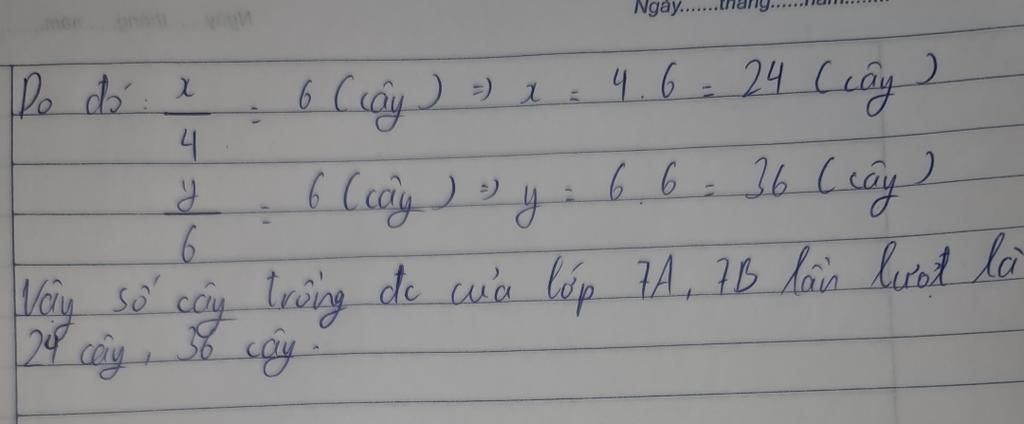 Ngày.......tháng......năm........
Do đó: x/4 = 6 (cây) => x = 4.6 = 24 (cây)
y/6 = 6 (cây) => y = 6.6 = 36 (cây)
Vậy số cây trồng đc của lớp 7A, 7B lần lượt là
24 cây, 36 cây.